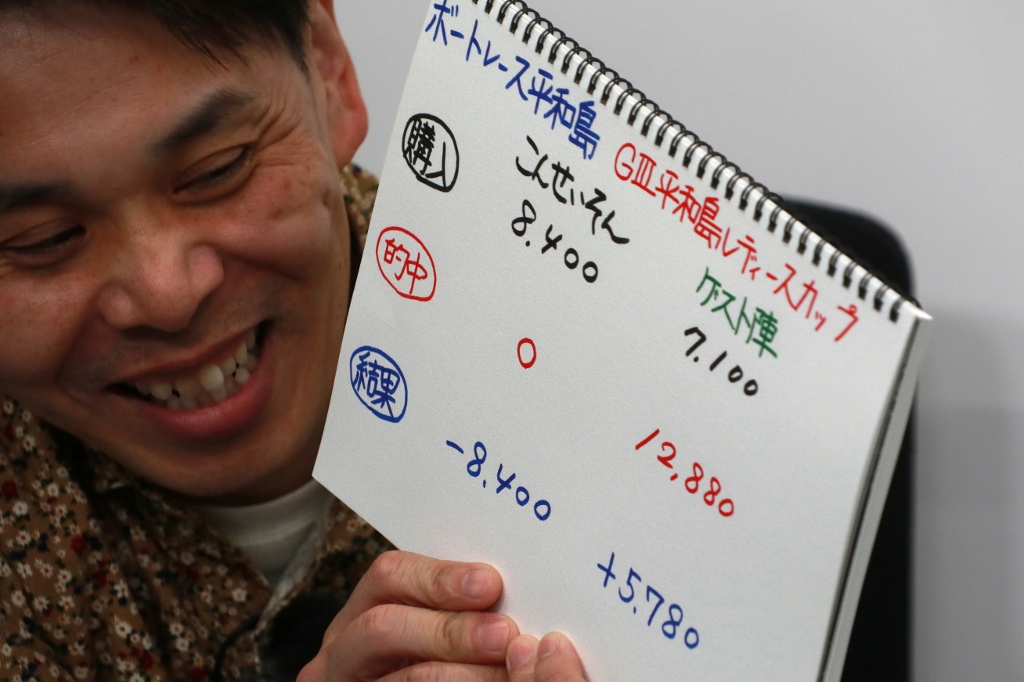 ボートレース平和島 GⅢ平和島レディースカップ
こんせいそん ゲスト陣
購入 8.400 7.100
的中 0 12,880
結果 -8.400 +5.780